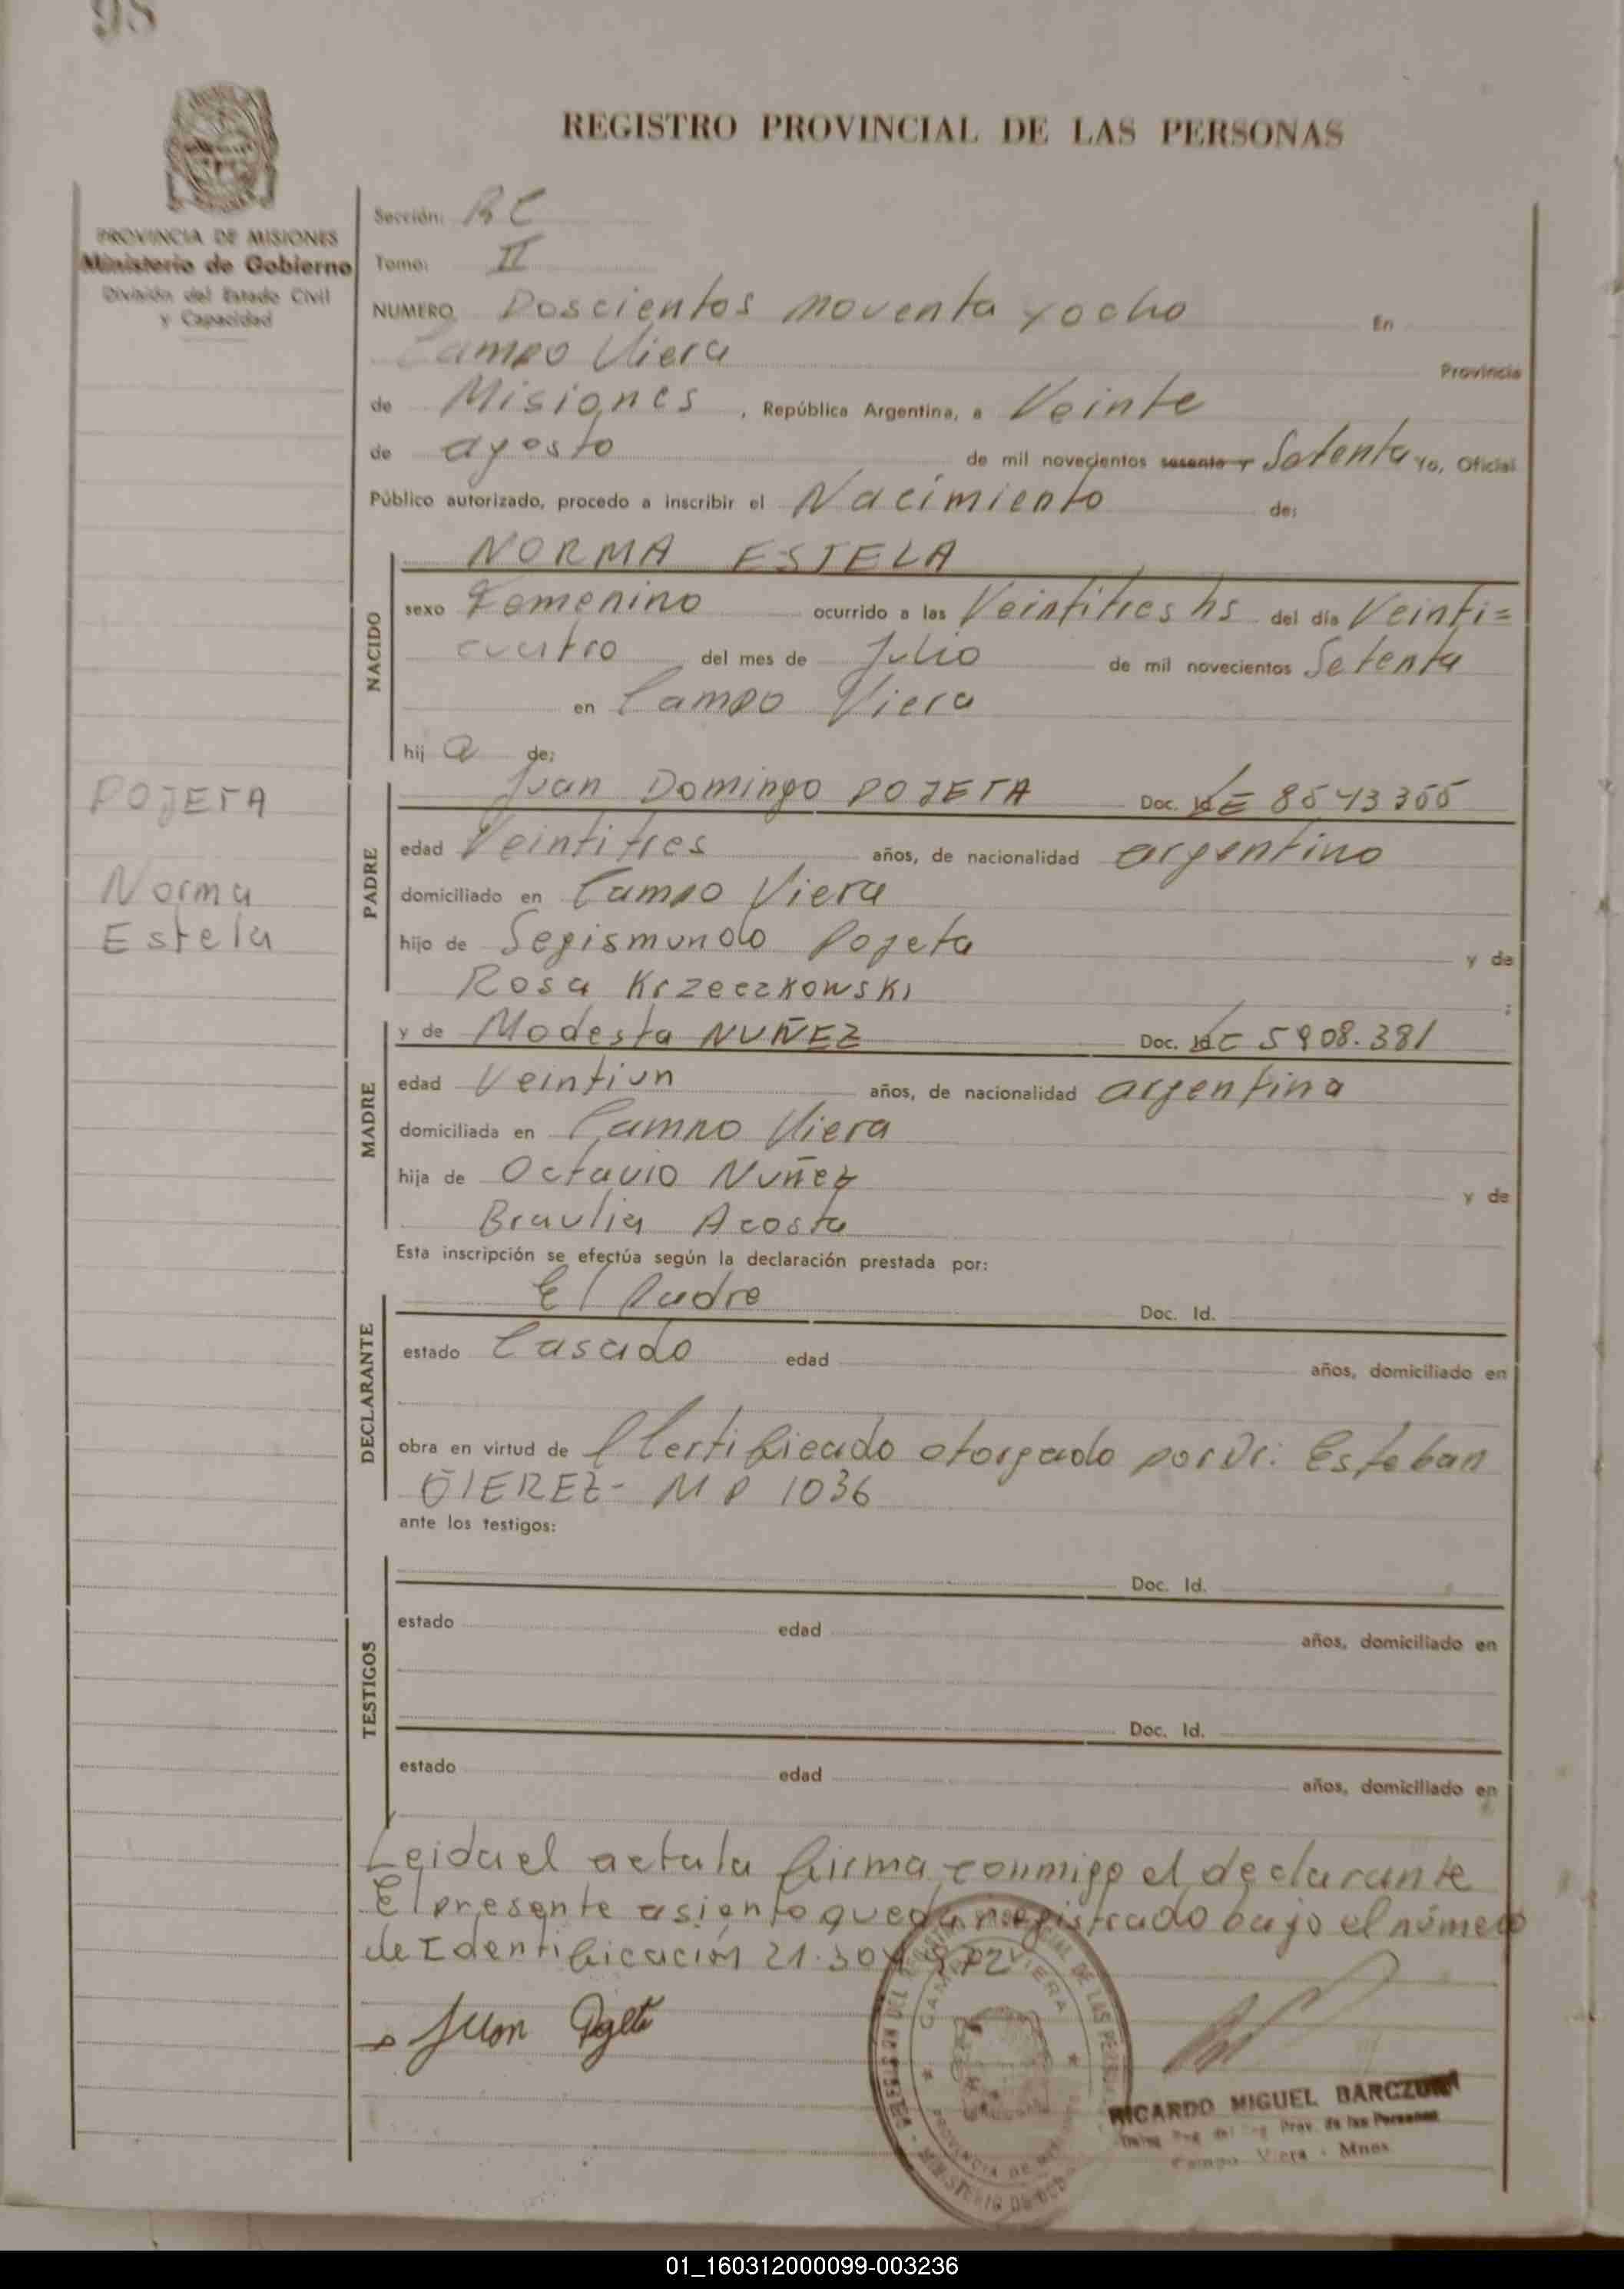 98
REGISTRO PROVINCIAL DE LAS PERSONAS
PROVINCIA DE MISIONES
Ministerio de Gobierno
División del Estado Civil
y Capacidad
Sección: RC
Tomo: II
NUMERO Doscientos noventa y ocho En
Campo Viera Provincia
de Misiones, República Argentina, a Veinte
de agosto de mil novecientos sesenta y Setenta Yo, Oficial
Público autorizado, procedo a inscribir el Nacimiento de:
NACIDO
NORMA ESTELA
sexo Femenino ocurrido a las Veintitres hs del día Veinti=
cuatro del mes de Julio de mil novecientos Setenta
en Campo Viera
hij a de:
POJETA
Norma
Estela
PADRE
Juan Domingo POJETA Doc. LE 8543355
edad Veintitres años, de nacionalidad argentino
domiciliado en Campo Viera
hijo de Segismundo Pojeta y de
Rosa Krzeczkowski ;
MADRE
y de Modesta NUÑEZ Doc. LC 5908.381
edad Veintiun años, de nacionalidad argentina
domiciliada en Campo Viera
hija de Octavio Nuñez y de
Braulia Acosta
Esta inscripción se efectúa según la declaración prestada por:
DECLARANTE
El Padre Doc. Id.
estado Casado edad años, domiciliado en
obra en virtud de Certificado otorgado por Dr. Esteban
MP 1036
ante los testigos:
TESTIGOS
Doc. Id.
estado edad años, domiciliado en
Doc. Id.
estado edad años, domiciliado en
Leida el acta la firma conmigo el declarante
El presente asiento queda registrado bajo el número
de Identificación 21.30
Juan Pojeta
CAMPO VIERA
PROVINCIA DE
RICARDO MIGUEL
Prov. de las Personas
Campo Viera - Mnes
01_160312000099-003236